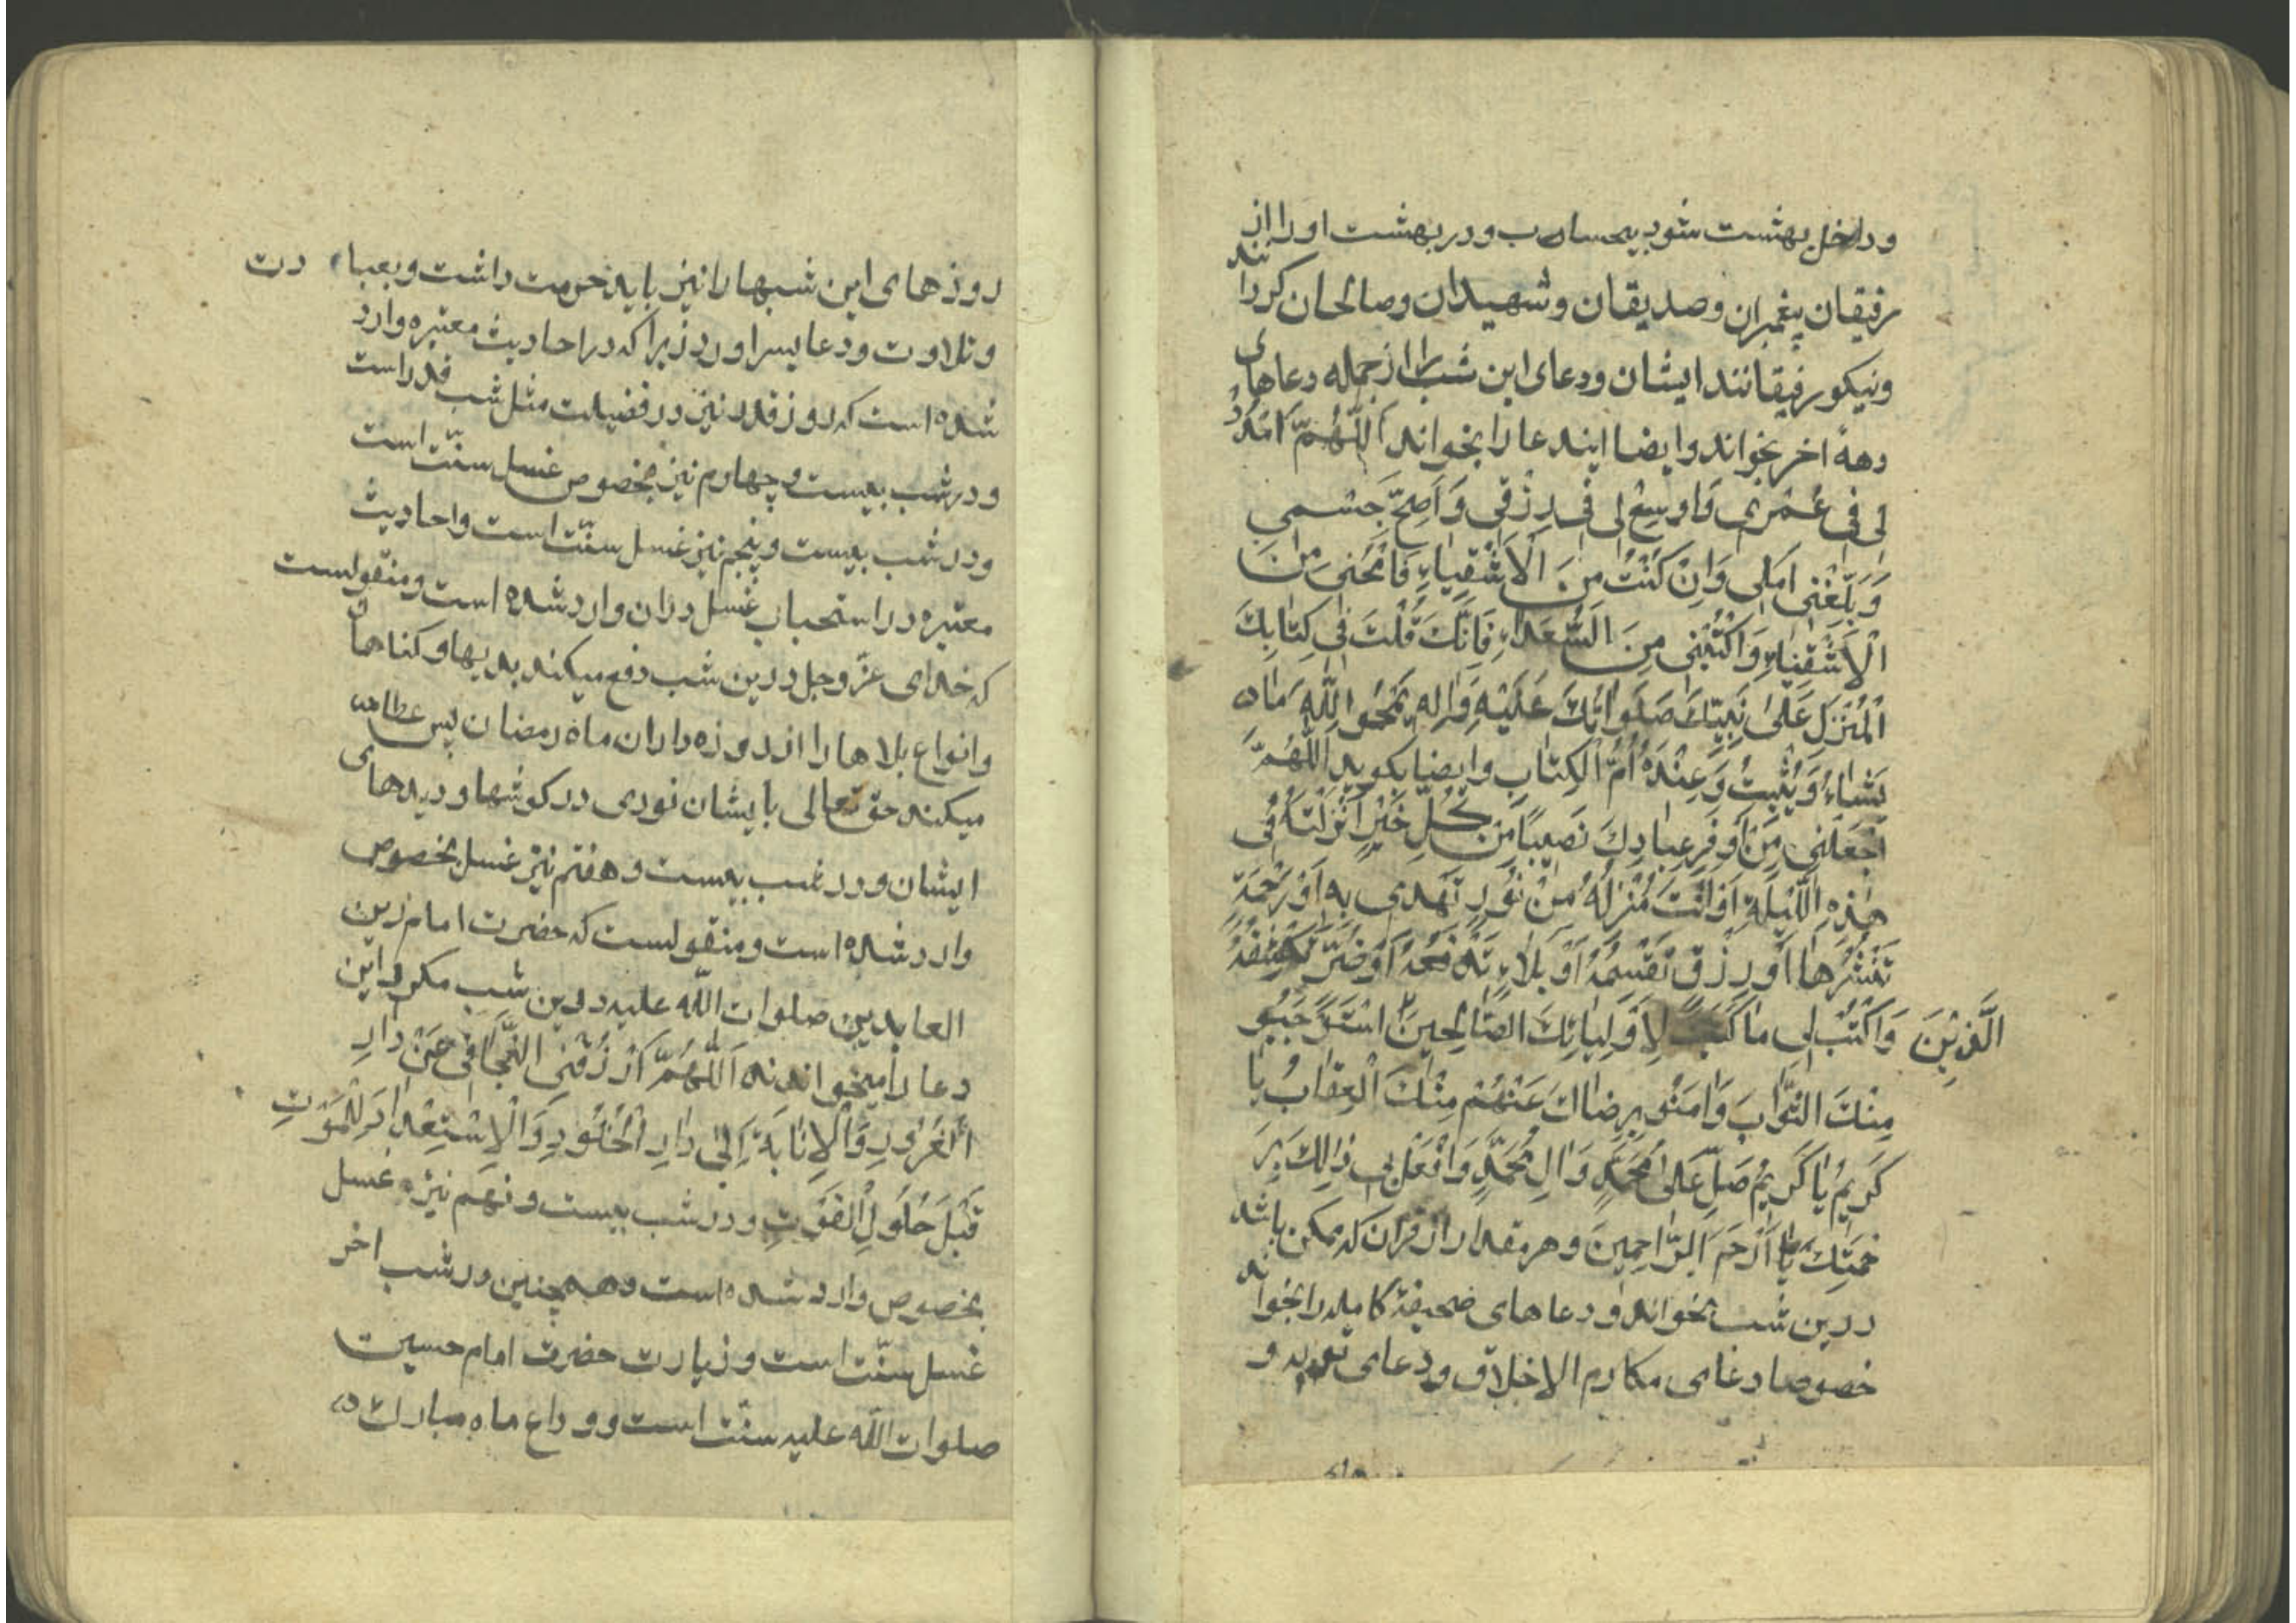 وداخل بهشت شود بیحساب و در بهشت او را از
رفیقان پیغمبران و صدیقان و شهیدان و صالحان کردانند
و نیکو رفیقانند ایشان و دعای این شب را از جمله دعاهای
دههٔ اخر بخواند و ایضا ایندعا را بخواند اَللّٰهُمَّ امْدُدْ
لی فی عُمْری وَاوسِعْ لی فی رِزْقی وَ اَصِحَّ جَسْمی
وَ بَلِّغْنی اَمَلی وَاِنْ کُنْتُ مِنَ الْاَشْقِیاءِ فَامْحُنی مِنَ
الْاَشْقِیاءِ وَاکْتُبْنی مِنَ السُّعَداءِ فَاِنَّکَ قُلْتَ فی کِتابِکَ
الْمُنْزَلِ عَلیٰ نَبِیِّکَ صَلَواتُکَ عَلَیْهِ وَاٰلِهِ یَمْحُو اللّٰهُ مٰا
یَشٰاءُ وَ یُثْبِتُ وَ عِنْدَهُ اُمُّ الْکِتٰابِ و ایضا بکوید اَللّٰهُمَّ
اجْعَلْنی مِنْ اَوْفَرِ عِبادِکَ نَصیباً مِنْ کُلِّ خَیْرٍ اَنْزَلْتَهُ فی
هٰذِهِ اللَّیْلَةِ اَوْ اَنْتَ مُنْزِلُهُ مِنْ نُورٍ تَهْدی بِهِ اَوْ رَحْمَةٍ
تَنْشُرُها اَوْ رِزْقٍ تَقْسِمُهُ اَوْ بَلاءٍ تَدْفَعُهُ اَوْ ضُرٍّ تَکْشِفُهُ
وَاکْتُبْ لی ما کَتَبْتَ لِاَوْلِیائِکَ الصّٰالِحینَ الَّذینَ اسْتَوْجَبُو
مِنْکَ الثَّوابَ وَ اَمِنُو بِرِضاکَ عَنْهُمْ مِنْکَ الْعِقابَ یا
کَریمُ یا کَریمُ صَلِّ عَلیٰ مُحَمَّدٍ وَ اٰلِ مُحَمَّدٍ وَ افْعَلْ بی ذٰلِکَ بِرَ
حْمَتِکَ یا اَرْحَمَ الرّٰاحِمینَ و هر مقدار از قران که ممکن باشد
درین شب بخواند و دعاهای صحیفهٔ کامله را بخواند
خصوصا دعای مکارم الاخلاق و دعای توبه و
روزهای این شبها را نیز باید حرمت داشت و بعبادت
و تلاوت و دعا بسر اورد زیرا که در احادیث معتبره وارد
شده است که روز قدر نیز در فضیلت مثل شب قدر است
و در شب بیست و چهارم نیز بخصوص غسل سنّت است
و در شب بیست و پنجم نیز غسل سنّت است و احادیث
معتبره در استحباب غسل دران وارد شده است و منقولست
که خدای عزّ و جل درین شب دفع میکند بدیها و کناهان
و انواع بلاها را از روزه داران ماه رمضان پس عطا
میکند حق تعالی بایشان نوری در کوشها و دیدهای
ایشان و در شب بیست و هفتم نیز غسل بخصوص
وارد شده است و منقولست که حضرت امام زین
العابدین صلوات اللّه علیه درین شب مکرر این
دعا را میخواندند اَللّٰهُمَّ ارْزُقْنی التَّجافی عَنْ دارِ
الْغُرُورِ وَ الْاِنابَةَ اِلیٰ دارِ الْخُلُودِ وَ الْاِسْتِعْدادَ لِلْمَوْتِ
قَبْلَ حُلُولِ الْفَوْتِ و در شب بیست و نهم نیز غسل
بخصوص وارد شده است و همچنین در شب اخر
غسل سنّت است و زیارت حضرت امام حسین
صلوات اللّه علیه سنّت است و وداع ماه مبارک